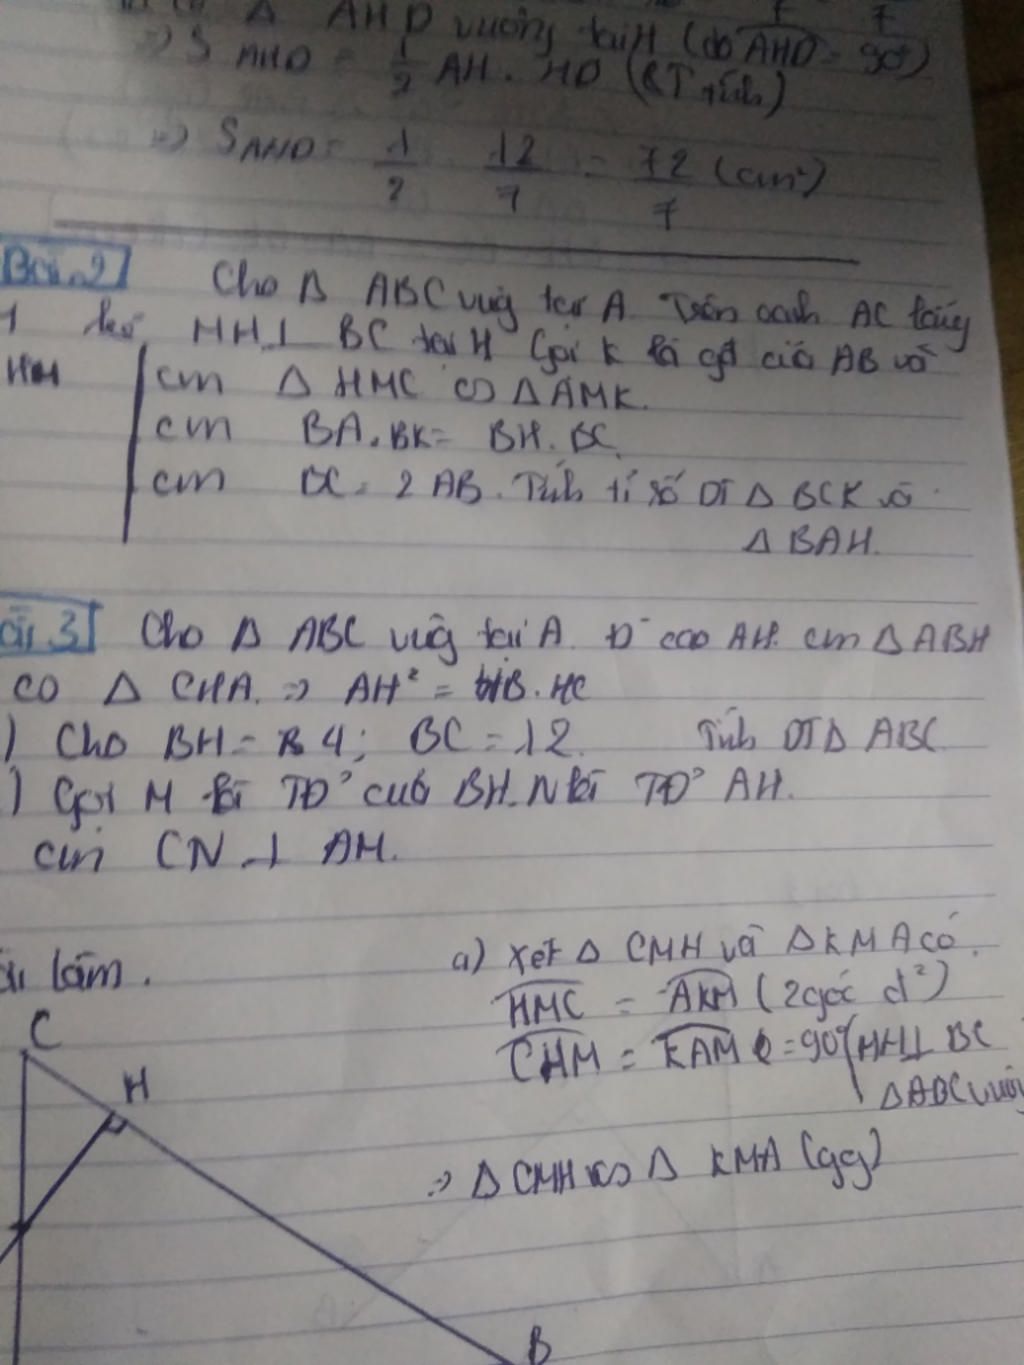 Δ AHD vuông tại H (do AHD = 90°)
=> S AHD = 1/2 AH. HD (CT tính)
=> SAHD = 1/2 12/7 = 72/7 (cm²)
Bài 2 Cho Δ ABC vuông tại A. Trên cạnh AC
kẻ MH⊥ BC tại H Gọi K là gđ của AB và
HM
cm Δ HMC ∽ Δ AMK.
cm BA.BK = BH.BC.
cm BC = 2AB. Tính tỉ số DT Δ BCK và
Δ BAH.
3 Cho Δ ABC vuông tại A. Đ cao AH. cm Δ ABH
∽ Δ CHA. => AH² = HB.HC
) Cho BH = 4; BC = 12. Tính DT Δ ABC
) Gọi M là TĐ' của BH. N là TĐ' AH.
cm CN ⊥ AM.
làm. a) Xét Δ CMH và Δ KMA có.
HMC = AKM (2 góc đ²)
CHM = KAM = 90° (MH⊥ BC
Δ ABC vuông
=> Δ CMH ∽ Δ KMA (gg)
C
H
B